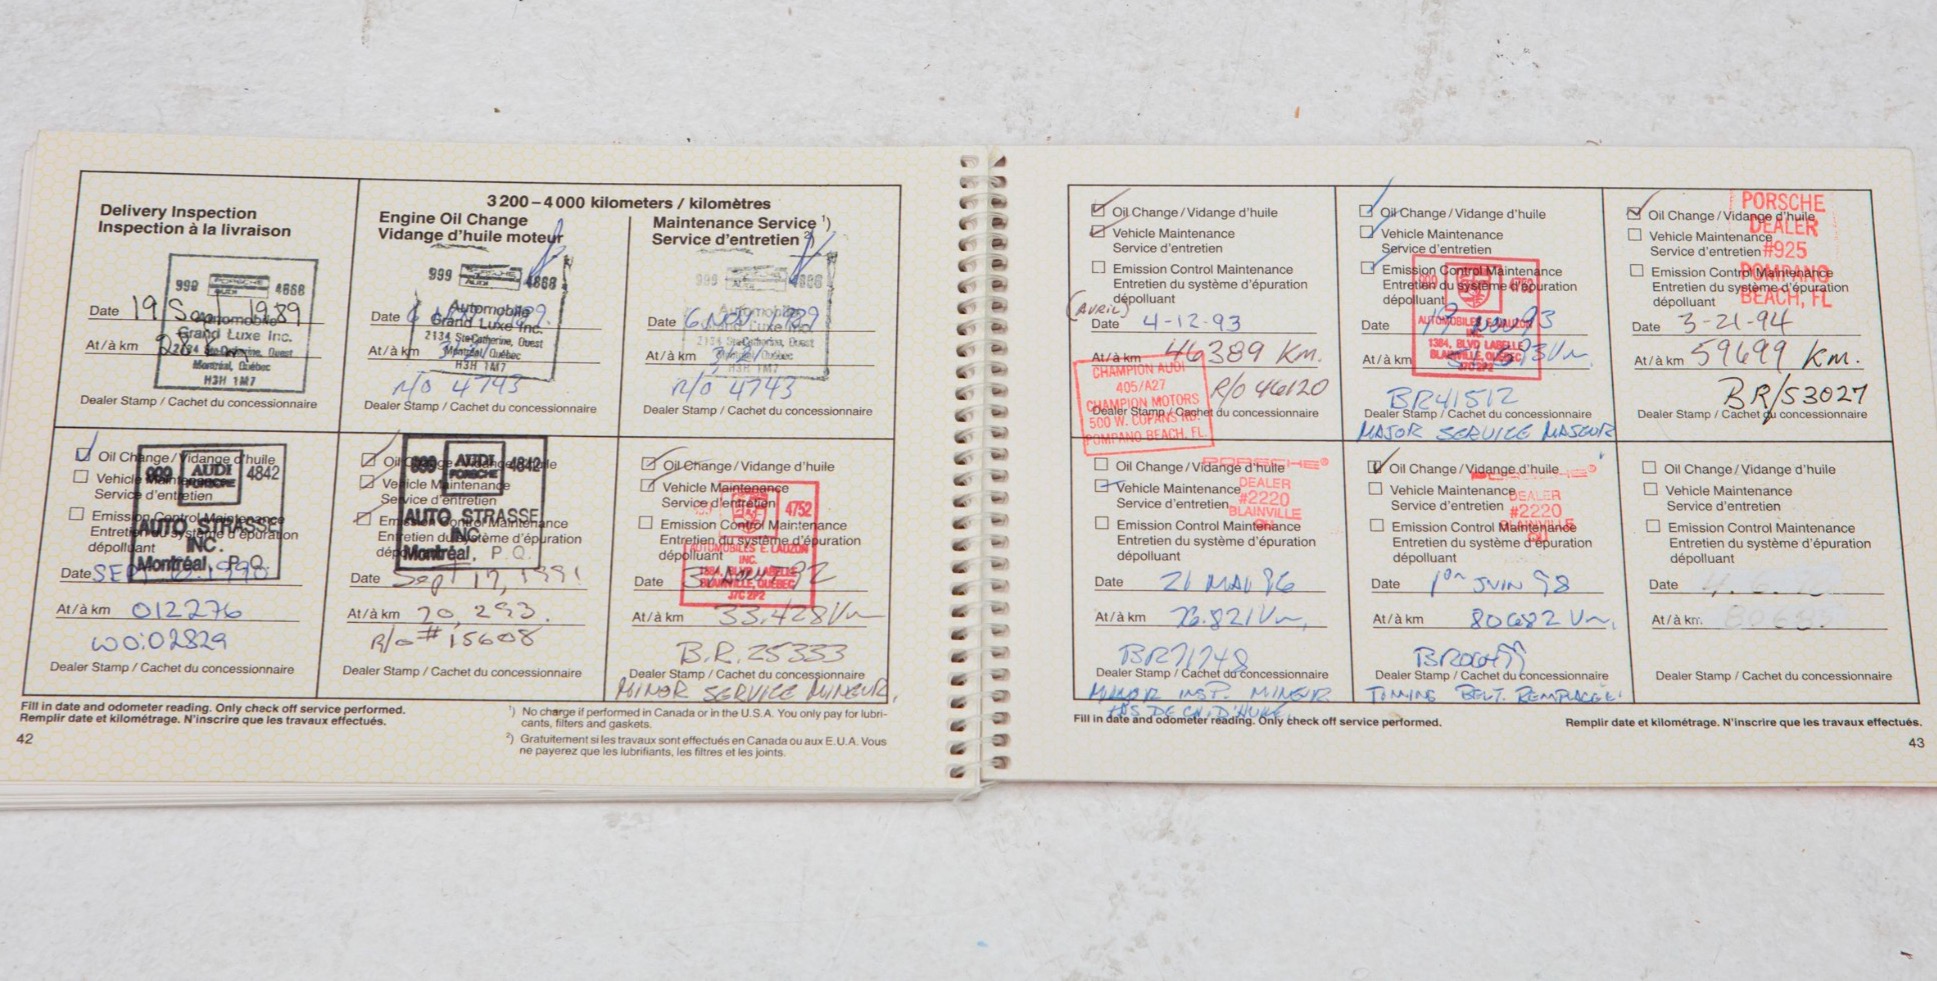 Delivery Inspection
Inspection à la livraison
999 4868
PORSCHE
AUDI
Date 19 1989
Automobile
Grand Luxe Inc.
2134 Ste-Catherine, Ouest
At / à km
Montréal, Québec
H3H 1M7
Dealer Stamp / Cachet du concessionnaire
3 200 – 4 000 kilometers / kilomètres
Engine Oil Change
Vidange d'huile moteur
999 4868
PORSCHE
AUDI
Automobile
Date 6
Grand Luxe Inc.
2134 Ste-Catherine, Ouest
At / à km
Montréal, Québec
H3H 1M7
R/O 4743
Dealer Stamp / Cachet du concessionnaire
Maintenance Service 1)
Service d'entretien 2)
999 4868
AUDI
Automobile
Date 6 Nov
Grand Luxe Inc.
2134 Ste-Catherine, Ouest
At / à km
Montréal, Québec
H3H 1M7
R/O 4743
Dealer Stamp / Cachet du concessionnaire
Oil Change / Vidange d'huile
Vehicle Maintenance
Service d'entretien
Emission Control Maintenance
Entretien du système d'épuration
dépolluant
999 AUDI 4842
PORSCHE
AUTO STRASSE
INC.
Montréal, P.Q.
Date SEPT 1990
At / à km 012276
WO:02829
Dealer Stamp / Cachet du concessionnaire
Oil Change / Vidange d'huile
Vehicle Maintenance
Service d'entretien
Emission Control Maintenance
Entretien du système d'épuration
dépolluant
999 AUDI 4842
PORSCHE
AUTO STRASSE
INC.
Montréal, P.Q.
Date Sept 17, 1991
At / à km 20,293.
R/O # 15608
Dealer Stamp / Cachet du concessionnaire
Oil Change / Vidange d'huile
Vehicle Maintenance
Service d'entretien
Emission Control Maintenance
Entretien du système d'épuration
dépolluant
4752
AUTOMOBILES E. LAUZON
INC.
1384, BLVD LABELLE
BLAINVILLE, QUÉBEC
J7C 2P2
Date 92
At / à km 33.428 Km
B.R. 25333
Dealer Stamp / Cachet du concessionnaire
MINOR SERVICE MINEUR.
Fill in date and odometer reading. Only check off service performed.
Remplir date et kilométrage. N'inscrire que les travaux effectués.
1) No charge if performed in Canada or in the U.S.A. You only pay for lubri-
cants, filters and gaskets.
2) Gratuitement si les travaux sont effectués en Canada ou aux E.U.A. Vous
ne payerez que les lubrifiants, les filtres et les joints.
42
Oil Change / Vidange d'huile
Vehicle Maintenance
Service d'entretien
Emission Control Maintenance
Entretien du système d'épuration
dépolluant
(AVRIL)
Date 4-12-93
At / à km 46389 Km.
R/O 46120
CHAMPION AUDI
405/A27
CHAMPION MOTORS
500 W. COPANS RD.
POMPANO BEACH, FL.
Dealer Stamp / Cachet du concessionnaire
Oil Change / Vidange d'huile
Vehicle Maintenance
Service d'entretien
Emission Control Maintenance
Entretien du système d'épuration
dépolluant
AUTOMOBILES E. LAUZON
INC.
1384, BLVD LABELLE
BLAINVILLE, QUÉBEC
J7C 2P2
Date 93
At / à km
BR41512
Dealer Stamp / Cachet du concessionnaire
MAJOR SERVICE MAJEUR
Oil Change / Vidange d'huile
Vehicle Maintenance
Service d'entretien
Emission Control Maintenance
Entretien du système d'épuration
dépolluant
PORSCHE
DEALER
#925
POMPANO
BEACH, FL
Date 3-21-94
At / à km 59699 Km.
BR/53027
Dealer Stamp / Cachet du concessionnaire
Oil Change / Vidange d'huile
Vehicle Maintenance
Service d'entretien
Emission Control Maintenance
Entretien du système d'épuration
dépolluant
PORSCHE®
DEALER
#2220
BLAINVILLE
Date 21 MAI 96
At / à km 76.821 Km,
BR71748
Dealer Stamp / Cachet du concessionnaire
MINOR INSP. MINEUR
PAS DE CH. D'HUILE
Oil Change / Vidange d'huile
Vehicle Maintenance
Service d'entretien
Emission Control Maintenance
Entretien du système d'épuration
dépolluant
DEALER
#2220
BLAINVILLE
Date 1er JUIN 98
At / à km 80682 Km,
Dealer Stamp / Cachet du concessionnaire
TIMING BELT. REMPLACÉE.
Oil Change / Vidange d'huile
Vehicle Maintenance
Service d'entretien
Emission Control Maintenance
Entretien du système d'épuration
dépolluant
Date
At / à km
Dealer Stamp / Cachet du concessionnaire
Fill in date and odometer reading. Only check off service performed.
Remplir date et kilométrage. N'inscrire que les travaux effectués.
43